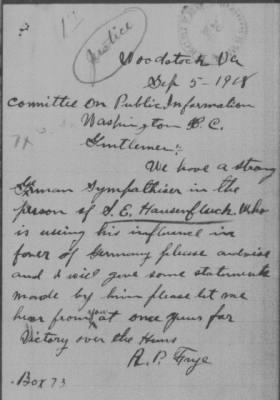 Justice
Woodstock Va
Sep 5-1918
Committee On Public Information
Washington D.C.
Gentlemen:
We have a strong
German Sympathiser in the
person of S. E. Hausenfluck who
is using his influence in
faver of Germany please advise
and I will give some statements
made by him please let me
hear from you at once yours for
Victory over the Huns
R. P. Frye
Box 73